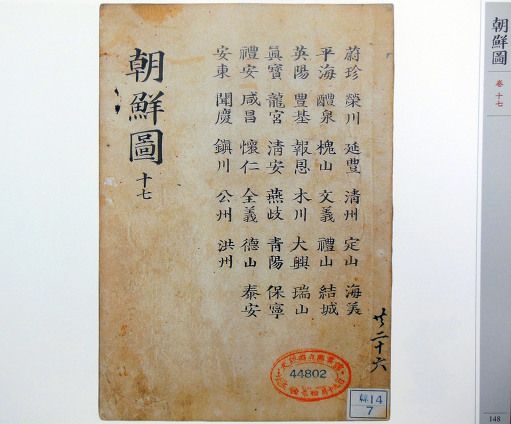 朝鮮圖 十七
蔚珍 榮川 延豊 清州 定山 海美
平海 醴泉 槐山 文義 禮山 結城
英陽 豐基 報恩 木川 大興 瑞山
眞寶 龍宮 清安 燕歧 青陽 保寧
禮安 咸昌 懷仁 全義 德山 泰安
安東 聞慶 鎭川 公州 洪州
共二十六
44802
14
7
朝鮮圖
卷十七
148